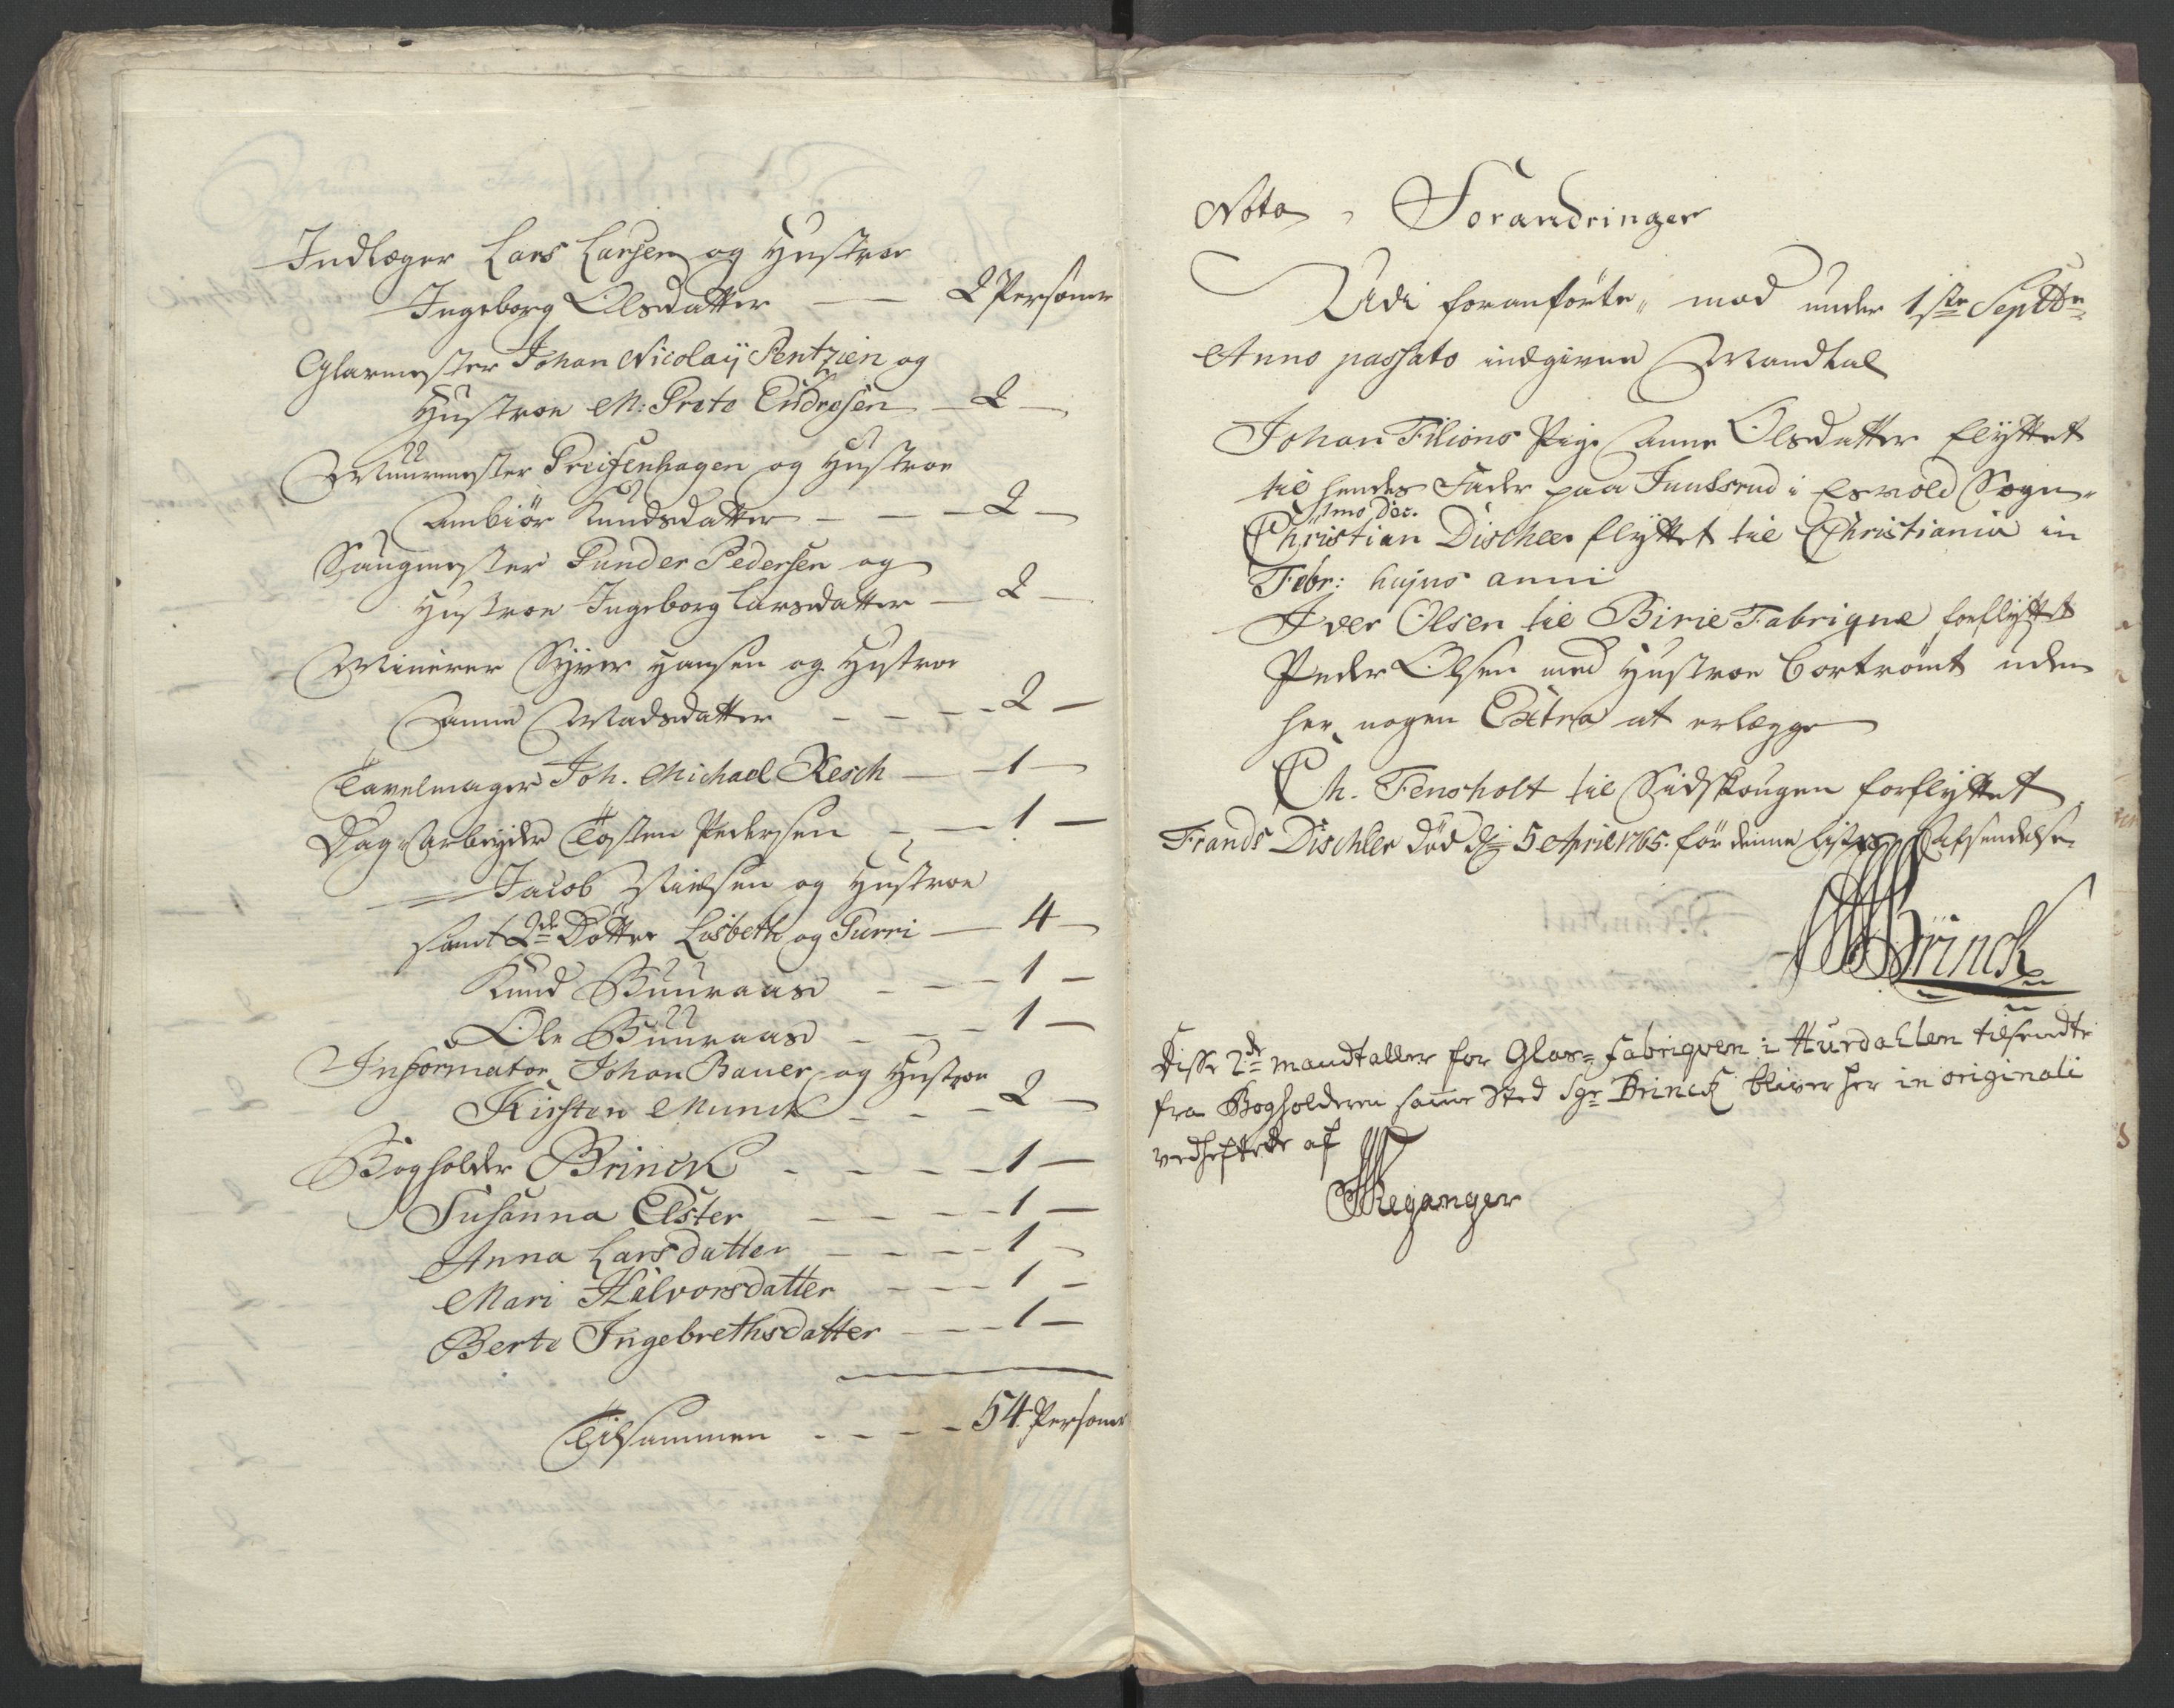 Indlæger Lars Larsen og Hustroe
Ingeborg Olsdatter — — 2 Personer
Glarmester Johan Nicolaij Pentzien og
Hustroe M: Grete Endresen — 2 —
Muurmester Greifenhagen og Hustroe
Anbiör Knudsdatter — — — 2 —
Saugmester Gunder Pedersen og
Hustroe Ingeborg Larsdatter — 2 —
Minerer Syver Hansen og Hustroe
Anne Madsdatter — — — — 2 —
Tavelmager Joh. Michael Resch — — 1 —
Dag-Arbeyder Tosten Pedersen — — 1 —
Jacob Nielsen og Hustroe
samt 2de Döttre Lisbeth og Gurri — 4 —
Knud Buuraase — — — 1 —
Ole Buuraase — — — 1 —
Informator Johan Bauer og Hustroe
Kirsten Munck — — — 2 —
Bogholder Brinck — — — — 1 —
Susanna Elster — — — — 1 —
Anna Larsdatter — — — — 1 —
Mari Halvorsdatter — — — 1 —
Berte Ingebrethsdatter — — — 1 —
Tilsammen — — — — 54 Personer
Nota, Forandringer
Udi foranförte, mod under 1ste Septbr
Anno passato indgivne Mandtal
Johan Filions Pige Anne Olsdatter flyttet
til hendes Fader paa i Eswold Sogn
1mo Dec.
Christian Dischler flyttet til Christiania in
Febr: hujus anni
Iver Olsen til Birie Fabrique forflyttet
Peder Olsen med Hustroe bortrömt uden
her nogen Extra at erlægge
Ch. Fensholt til Sidskougen forflyttet
Frands Dischler död d 5 April 1765. för denne Listes Afsendelse
Brinck
Disse 2de Mandtaller for Glas-Fabriqven i Hurdahlen tilsendte
fra Bogholderen samme Sted Sgr Brinck bliver her in originali
vedheftede af
Reganger